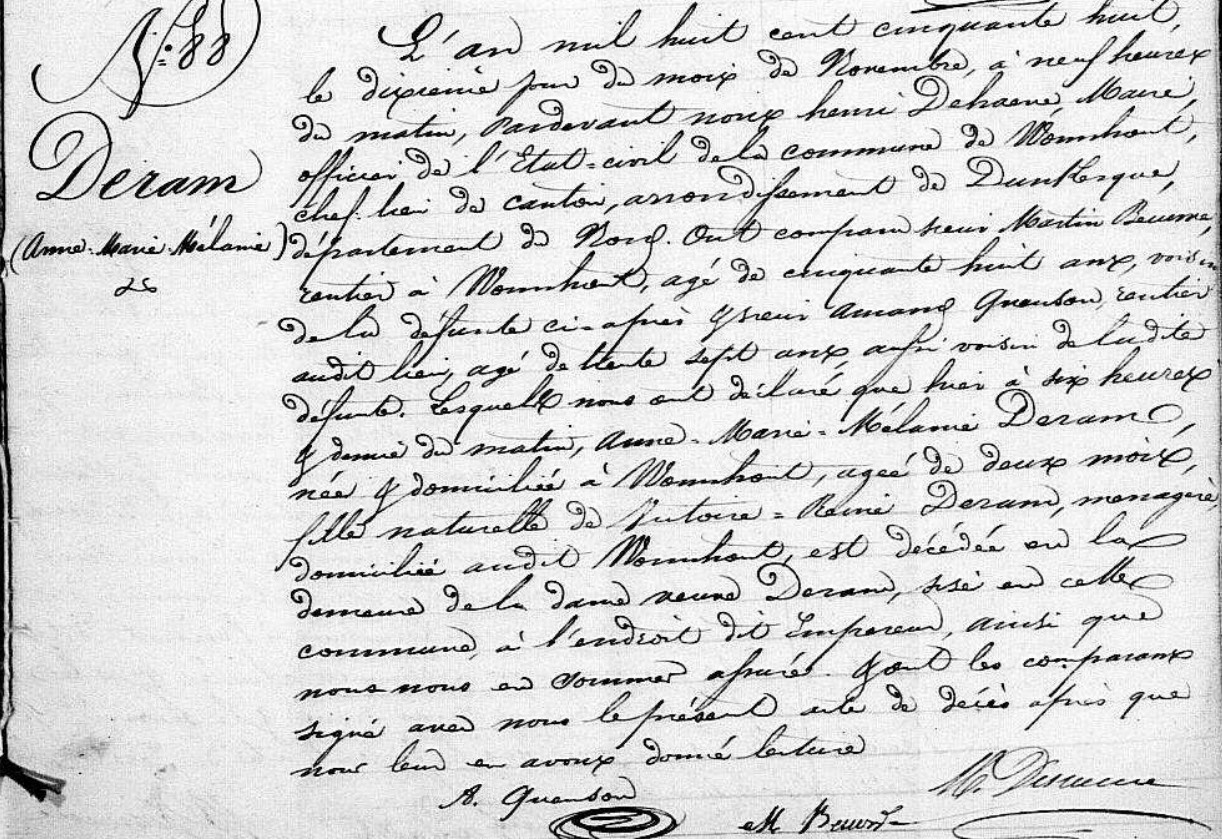 N.º 88
Deram
(Anne-Marie-Mélanie)
L'an mil huit cent cinquante huit,
le dixième jour du moix de Novembre, à neuf heurex
du matin, Pardevant noux henri Dehaene, Maire,
officier de l'Etat=civil de la commune de Wormhout,
chef-lieu de canton, arrondissement de Dunkerque,
département du Nord. Ont comparu sieur Martin
rentier à Wormhout, agé de cinquante huit anx, voisin
de la défunte ci-après & sieur Amand Quenson, rentier
audit lieu, agé de trente sept anx, aussi voisin de ladite
défunte. Lesquelx nous ont déclaré que hier à six heurex
& demie du matin, Anne-Marie=Mélanie Deram,
née & domiciliée à Wormhout, ageé de deux moix,
fille naturelle de Victoire=Reine Deram, menagère,
domiciliée audit Wormhout, est décédée en la
demeure de la dame veuve Deram, sise en cette
commune, à l'endroit dit Empereur, ainsi que
nous nous en sommes assuré. & ont les comparans
signé avec nous le présent acte de décès après que
nous leur en avonx donné lecture
A. Quenson
M.